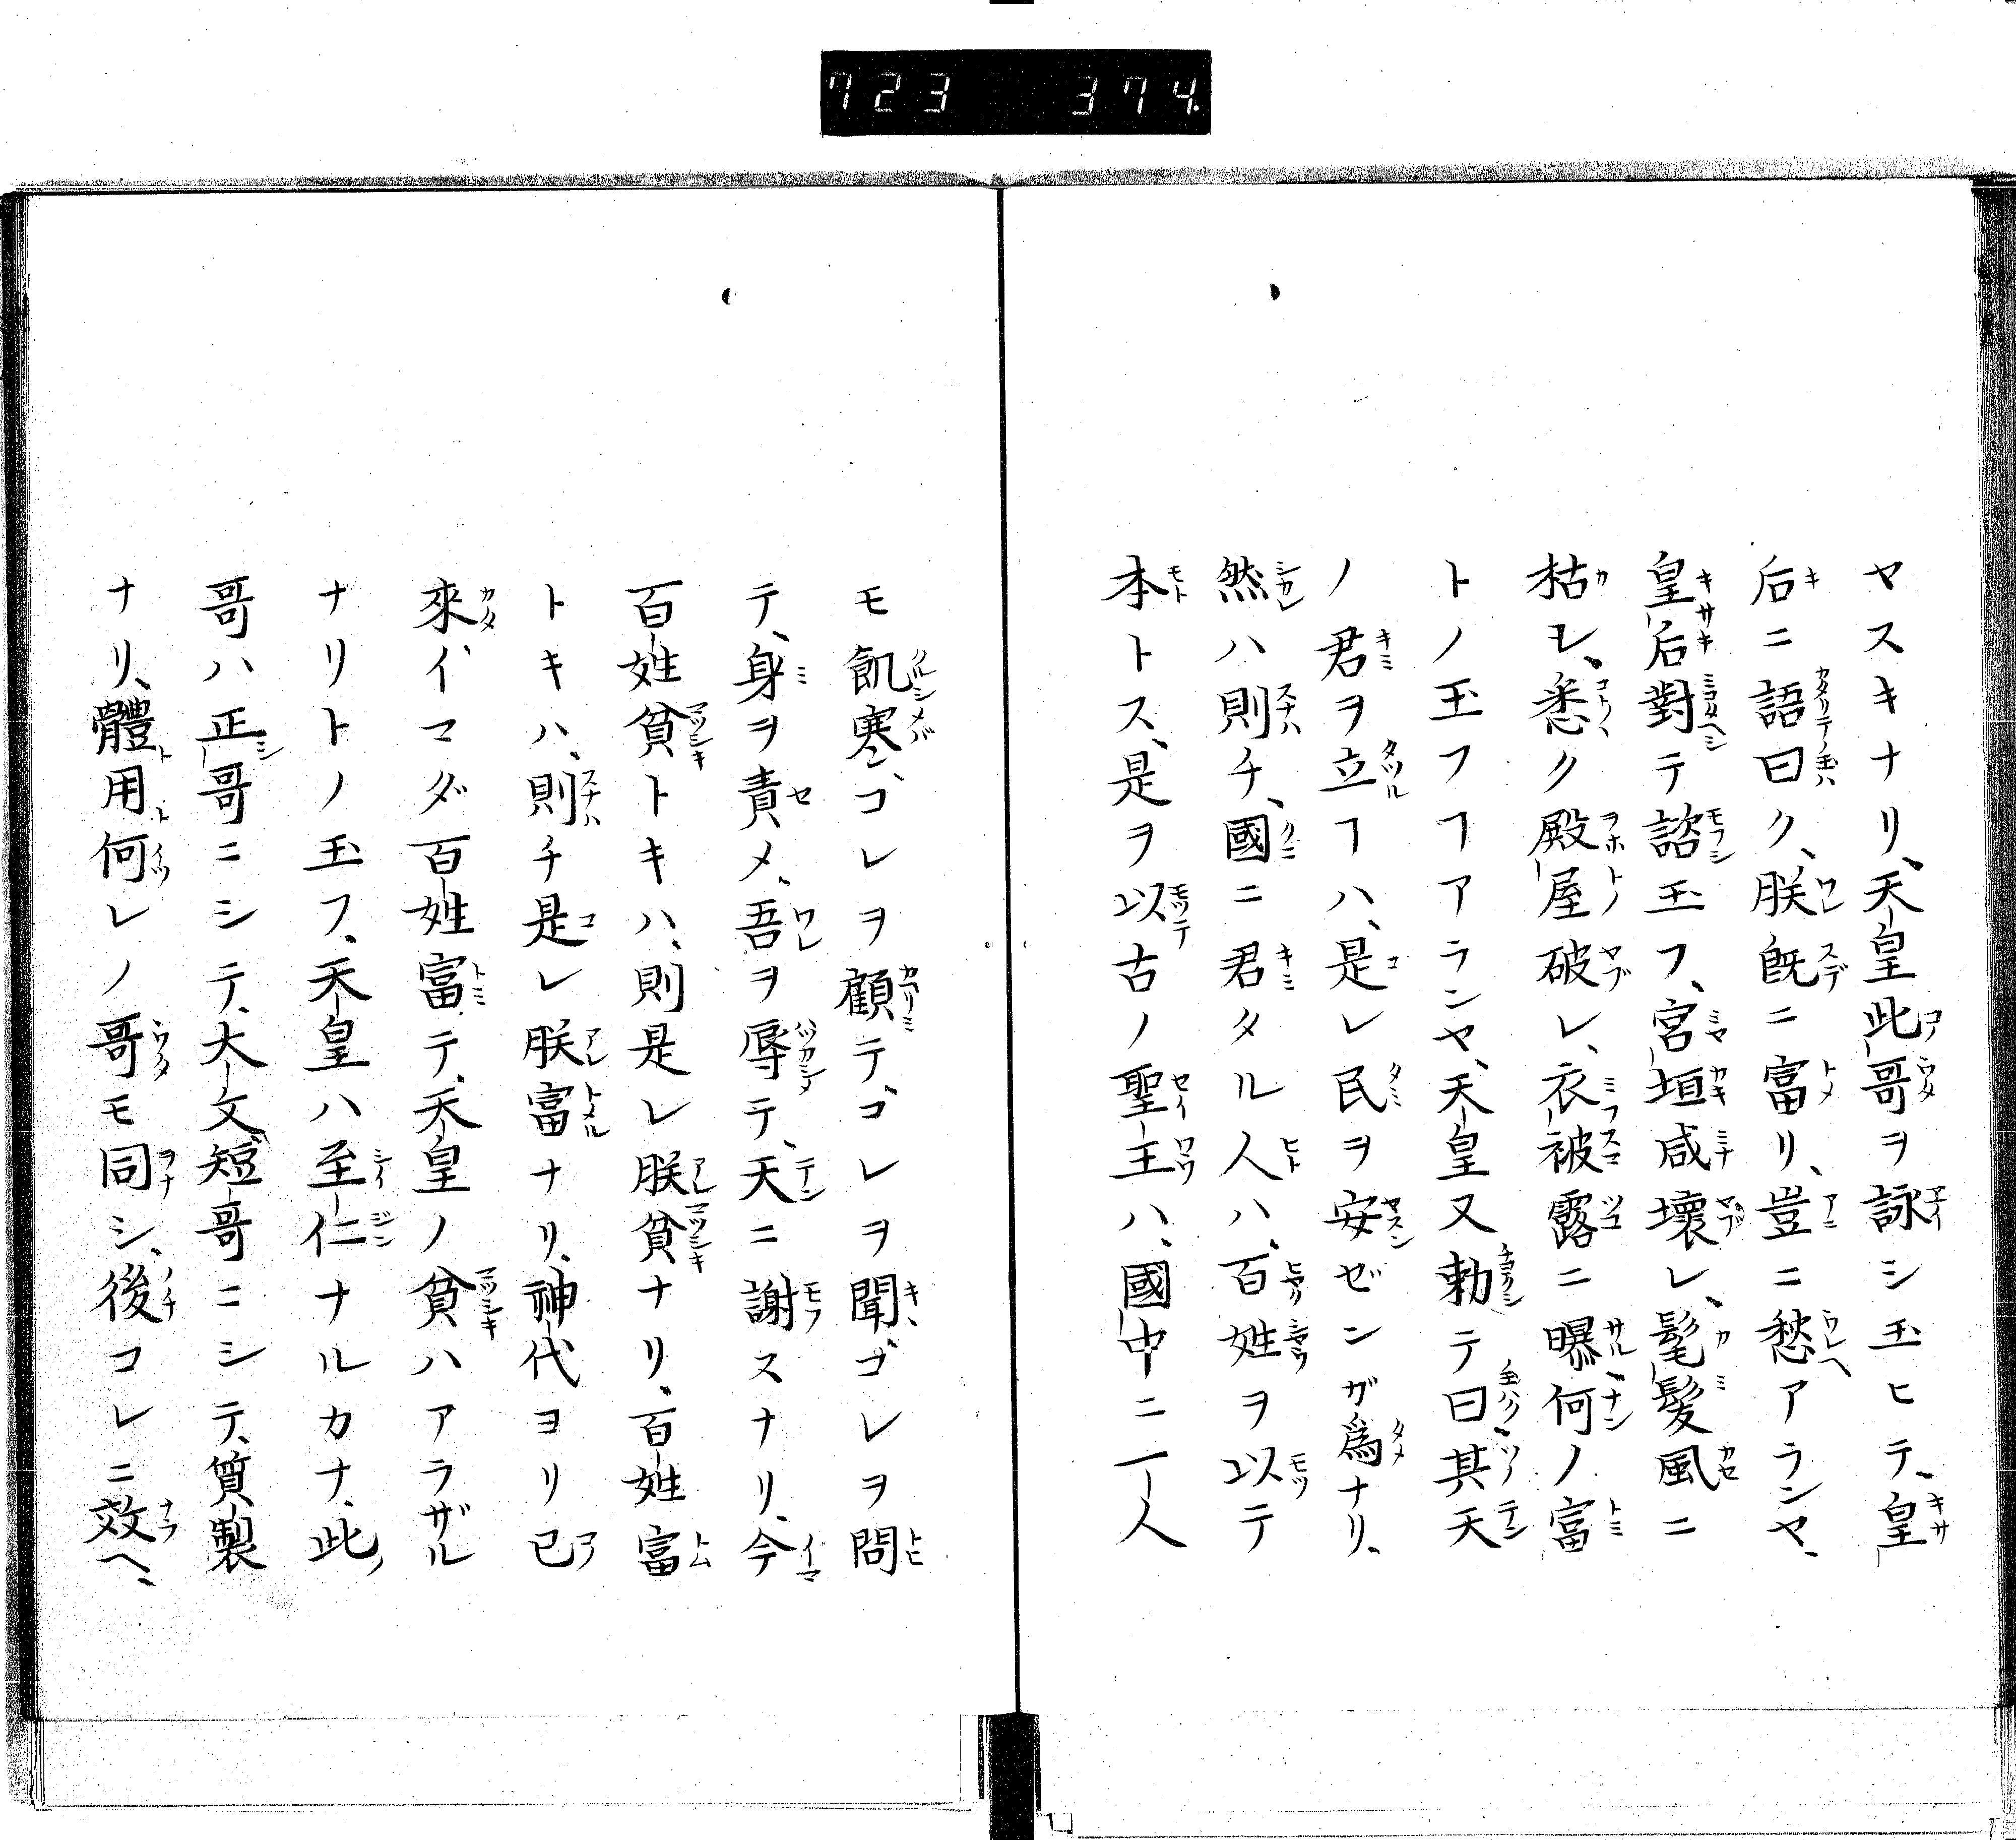 723 374.
ヤスキナリ、天皇此哥ヲ詠シ玉ヒテ、皇
后ニ語曰ク、朕既ニ富リ、豈ニ愁アランヤ、
皇后對テ諮玉フ、宮垣咸壞レ、髦髮風ニ
枯レ、悉ク殿屋破レ、衣被露ニ曝何ノ富
トノ玉フヿアランヤ、天皇又勅テ曰其天
ノ君ヲ立ヿハ、是レ民ヲ安ゼンガ爲ナリ、
然ハ則チ、國ニ君タル人ハ、百姓ヲ以テ
本トス、是ヲ以古ノ聖主ハ、國中ニ一人
モ飢寒、コレヲ顧テ、コレヲ聞、コレヲ問
テ、身ヲ責メ、吾ヲ辱テ、天ニ謝スナリ、今
百姓貧トキハ、則是レ朕貧ナリ、百姓富
トキハ、則チ是レ朕富ナリ、神代ヨリ已
來、イマダ百姓富テ、天皇ノ貧ハアラザル
ナリトノ玉フ、天皇ハ至仁ナルカナ、此
哥ハ正哥ニシテ、大文短哥ニシテ、質製
ナリ、體用何レノ哥モ同シ、後コレニ效ヘ、